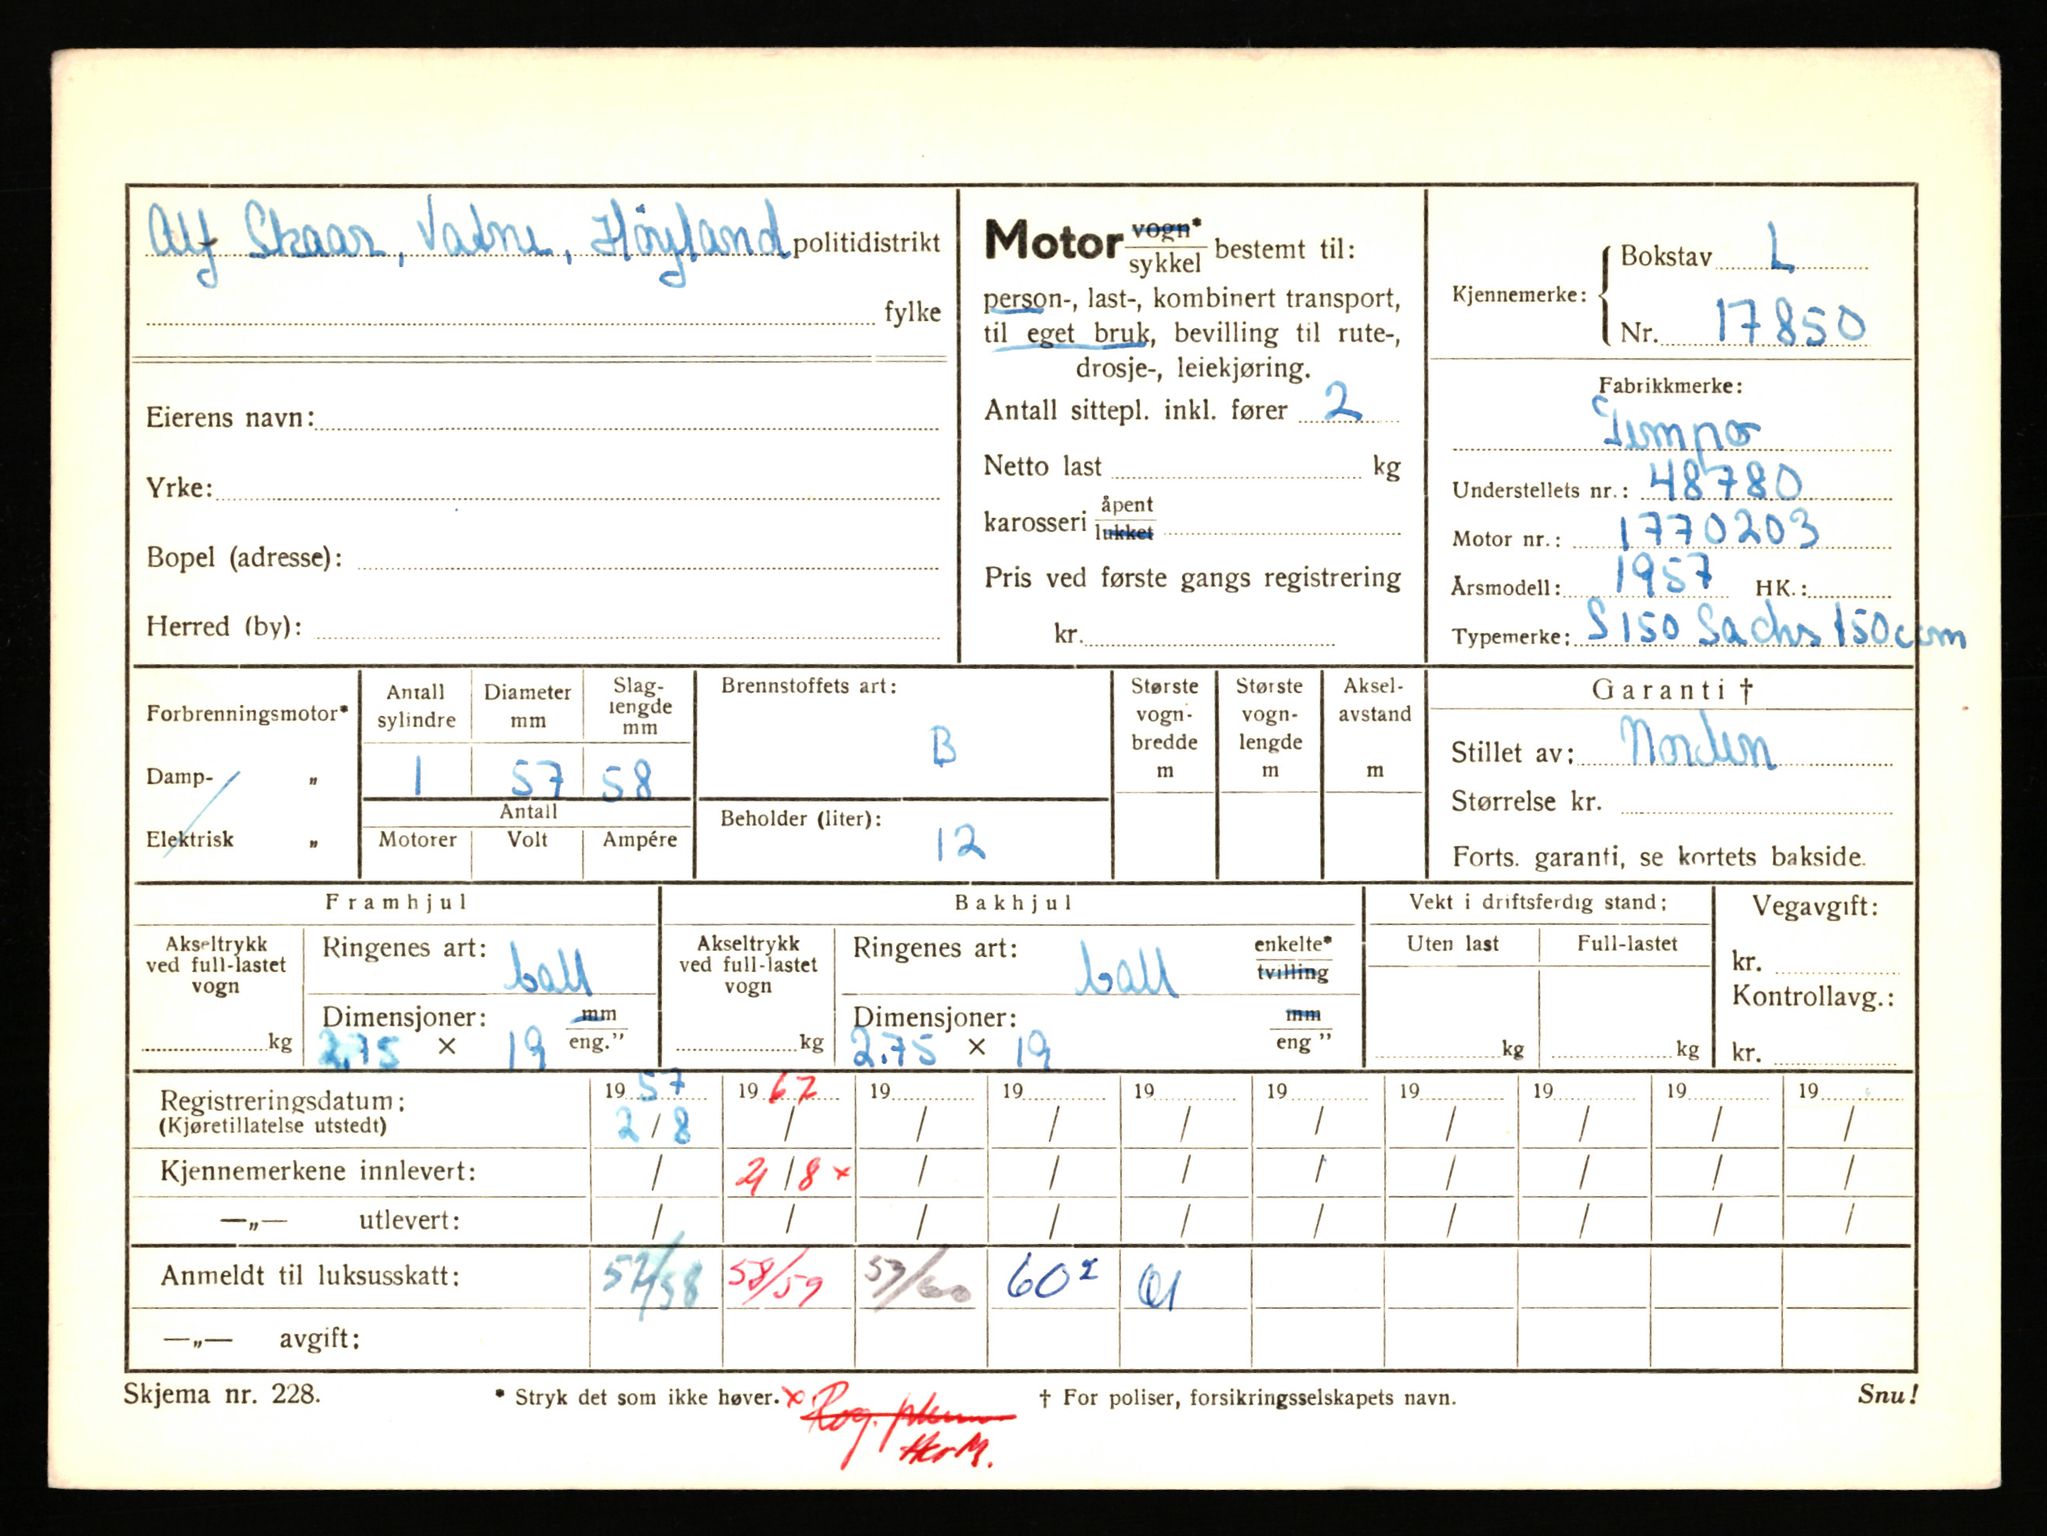 Alf Skaar, Vatne, Höyland politidistrikt
fylke
Eierens navn:
Yrke:
Bopel (adresse):
Herred (by):
Motor vogn* / sykkel bestemt til:
person-, last-, kombinert transport,
til eget bruk, bevilling til rute-,
drosje-, leiekjøring.
Antall sittepl. inkl. fører 2
Netto last kg
karosseri åpent / lukket
Pris ved første gangs registrering
kr.
Kjennemerke: Bokstav L
Nr. 17850
Fabrikkmerke:
Tempo
Understellets nr.: 48780
Motor nr.: 1770203
Årsmodell: 1957 HK.:
Typemerke: S 150 Sachs 150 ccm
Forbrenningsmotor*
Damp- „
Elektrisk „
Antall sylindre 1
Diameter mm 57
Slaglengde mm 58
Antall
Motorer Volt Ampére
Brennstoffets art:
B
Beholder (liter):
12
Største vognbredde m
Største vognlengde m
Akselavstand m
Garanti †
Stillet av: Norden
Størrelse kr.
Forts. garanti, se kortets bakside.
Framhjul
Akseltrykk ved full-lastet vogn
kg
Ringenes art: ball
Dimensjoner: mm / eng."
2.75 × 19
Bakhjul
Akseltrykk ved full-lastet vogn
kg
Ringenes art: ball enkelte* / tvilling
Dimensjoner: mm / eng "
2.75 × 19
Vekt i driftsferdig stand:
Uten last Full-lastet
kg kg
Vegavgift:
kr.
Kontrollavg.:
kr.
Registreringsdatum: 19 57 19 67 19 19 19 19 19 19 19 19
(Kjøretillatelse utstedt) 2/8 / / / / / / / / /
Kjennemerkene innlevert: / 21/8 × / / / / / / / /
—„— utlevert: / / / / / / / / / /
Anmeldt til luksusskatt: 57/58 58/59 59/60 60² 61
—„— avgift:
Skjema nr. 228. * Stryk det som ikke høver. × † For poliser, forsikringsselskapets navn. Snu!